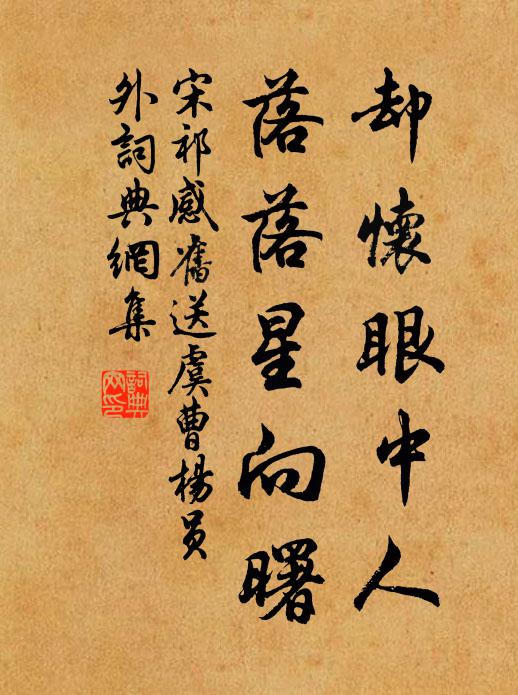 却懷眼中人
落落星向曙
宋祁感舊送虞曹楊員
外詞典網集
詞典
网印